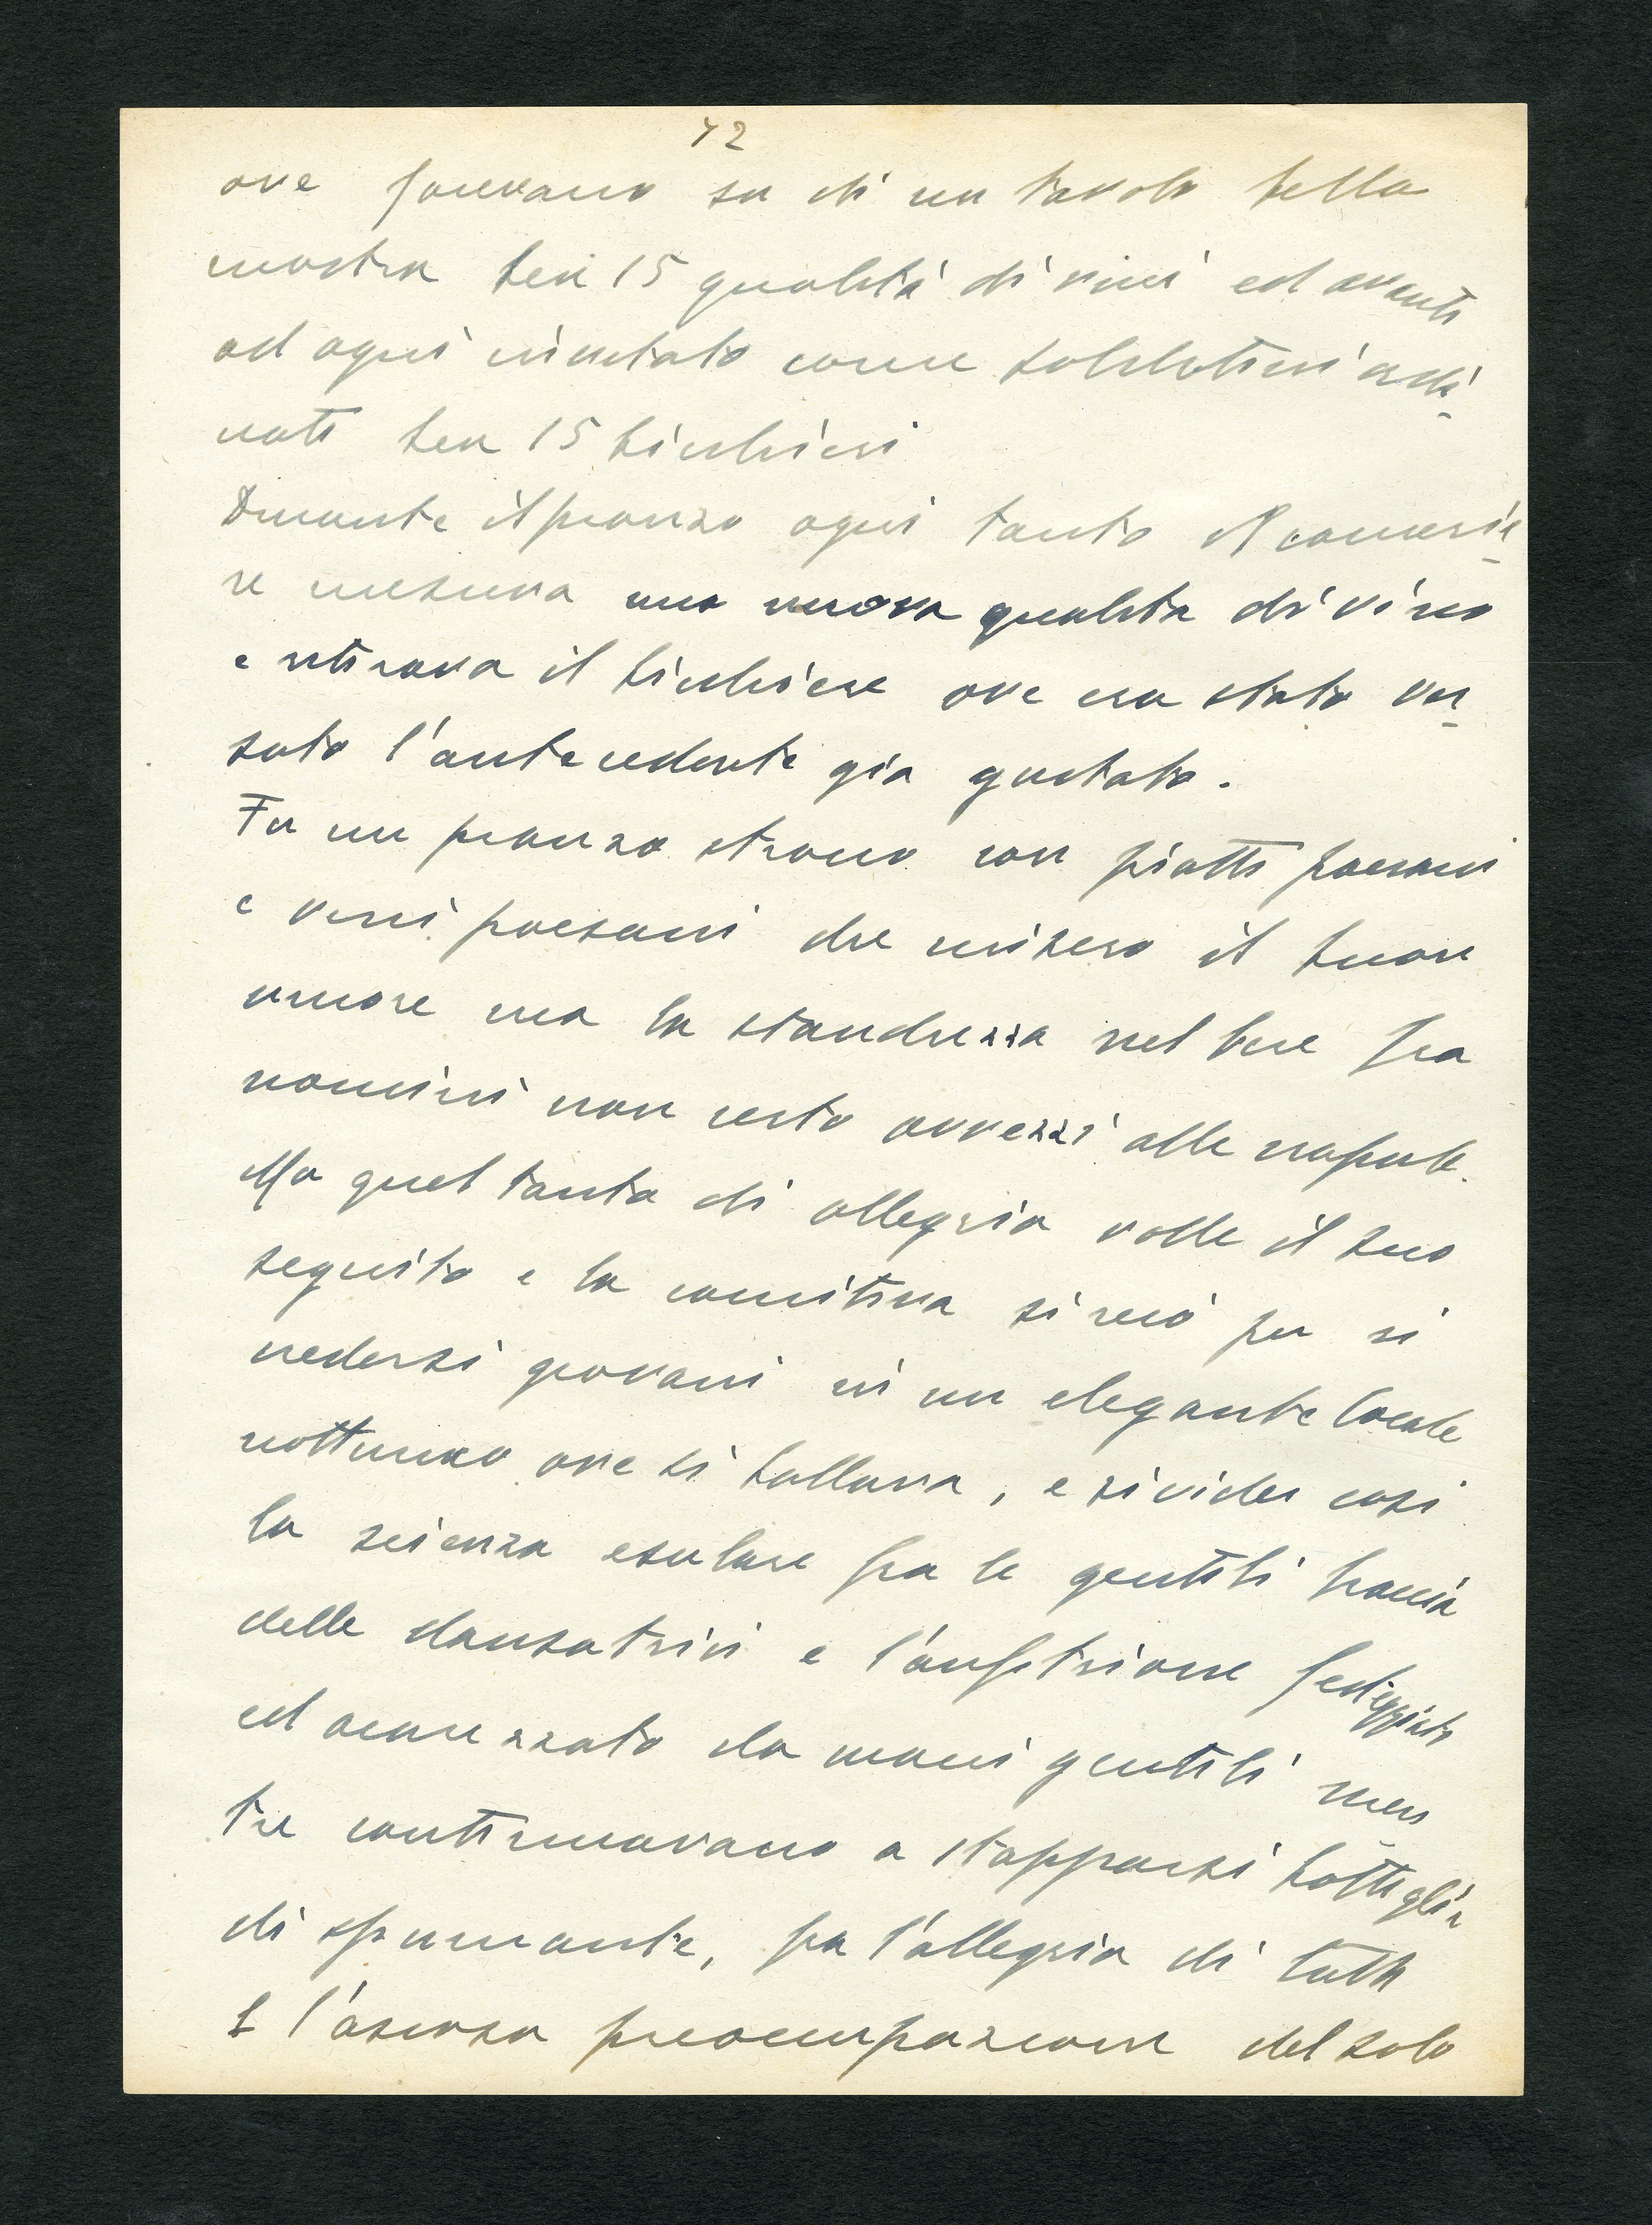 72
ove facevano su di un tavolo bella
mostra ben 15 qualità di vini ed avanti
ad ogni invitato come soldatini alli-
nati ben 15 bicchieri
Durante il pranzo ogni tanto il camerie-
re mesceva una nuova qualita di vino
e ritirava il bicchiere ove era stato ver-
sato l'antecedente gia gustato.
Fu un pranzo strano con piatti paesani
e vini paesani che misero il buon
umore ma la stanchezza nel bere fra
uomini non certo avvezzi alle crapule.
Ma quel tanto di allegria volle il suo
seguito e la comitiva si recò per ri
credersi giovani in un elegante locale
notturno ove si ballava, e si vider cosi
la scienza esulare fra le gentili braccia
delle danzatrici e l'anfitrione festeggiato
ed accarezzato da mani gentili men
tre continuavano a stapparsi bottiglie
di spumante, fra l'allegria di tutti
E l'ascosa preoccupazione del solo